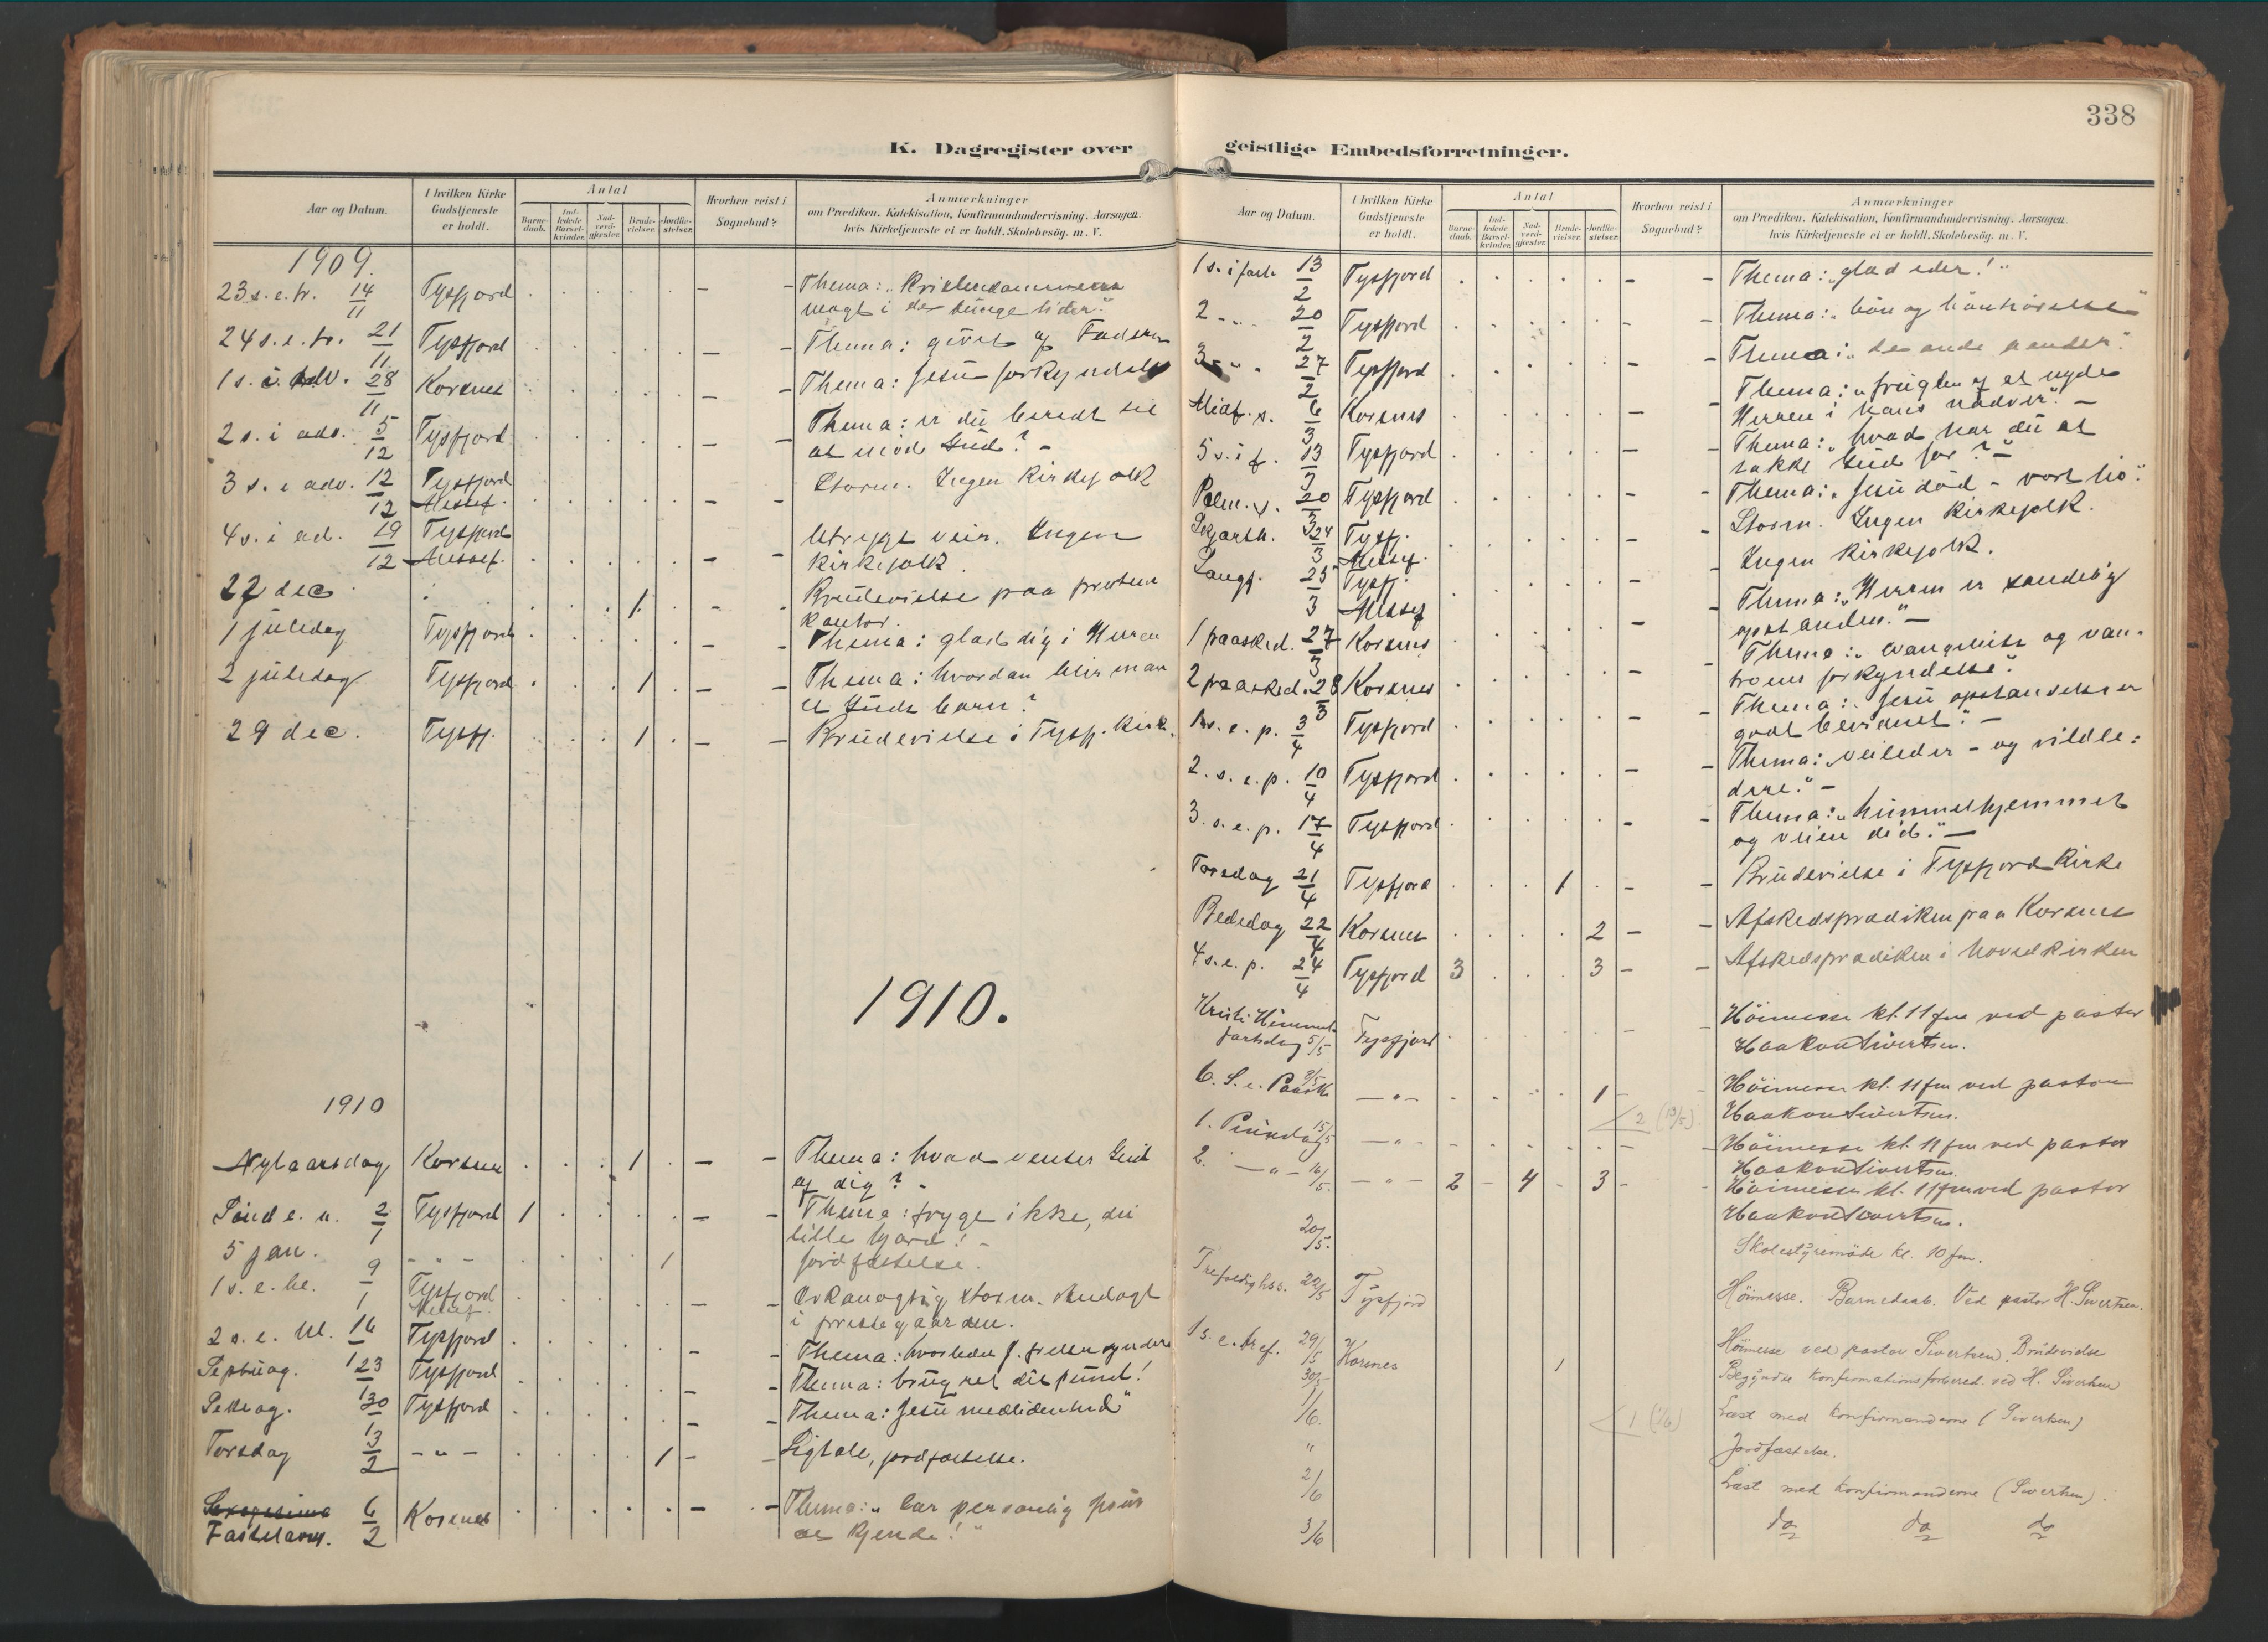 338
K. Dagregister over
Aar og Datum.
I hvilken Kirke Gudstjeneste er holdt.
Antal
Barne-daab.
Ind-ledede Barsel-kvinder.
Nad-verd-gjæster.
Brude-vielser.
Jordfæ-stelser.
Hvorhen reist i Sognebud?
Anmærkninger
om Prædiken, Katekisation, Konfirmandundervisning, Aarsagen,
hvis Kirketjeneste ei er holdt, Skolebesøg, m. V.
1909.
23 s. e. tr. 14/11 Tysfjord . . . . . - - Thema: „Kristendommens
magt i de tunge tider."
24 s. e. tr. 21/11 Tysfjord . . . . . - - Thema: givet af Faderen
1 s. i adv. 28/11 Korsnes . . . . . - - Thema: Jesu forkyndelse
2 s. i adv. 5/12 Tysfjord . . . . . - - Thema: er du beredt til
at møde Gud? -
3 s. i adv. 12/12 Tysfjord Messef. . . . . . - - Storm. Ingen Kirkefolk
4 s. i ad. 19/12 Tysfjord Messef. . . . . . - - Utrygt veir. Ingen
Kirkefolk.
22 dec . . . . 1 . - - Brudevielse paa prestens
kontor.
1 juledag Tysfjord . . . . . - - Thema: glæd dig i Herren
2 juledag Tysfjord . . . 1 . - - Thema: hvordan blir man
et Guds barn?
29 dec. Tysfj. . . . 1 . - - Brudevielse i Tysfj. Kirk.
1910.
1910
Nytaarsdag Korsnes . . . 1 . - - Thema: hvad venter Gud
af dig? -
Sønd e. n. 2/1 Tysfjord 1 . . . . - - Thema: frygt ikke, du
lille hjord! -
5 jan. - " - . . . . 1 Jordfæstelse.
1 s. e. h. 9/1 Tysfjord Messef. . . . . . - - Orkanagtig storm. Andagt
i prestegaarden.
2 s. e. H. 16/1 Tysfjord . . . . . - Thema: hvorledes J. frelser syndere
Septuag. 23/1 Tysfjord . . . . . - - Thema: brug ret dit pund!
Seksag. 30/1 Tysfjord . . . . . - - Thema: Jesu medlidenhed"
Torsdag 3/2 - " - . . . . 1 - - Ligtale, jordfæstelse.
Sexagesima
Fastelavns. 6/2 Korsnes . . . . . - - Thema: „Lær personlig Jesus
at kjende!"
geistlige Embedsforretninger.
Aar og Datum.
I hvilken Kirke Gudstjeneste er holdt.
Antal
Barne-daab.
Ind-ledede Barsel-kvinder.
Nad-verd-gjæster.
Brude-vielser.
Jordfæ-stelser.
Hvorhen reist i Sognebud?
Anmærkninger
om Prædiken, Katekisation, Konfirmandundervisning, Aarsagen,
hvis Kirketjeneste ei er holdt, Skolebesøg, m. V.
1 s. i faste 13/2 Tysfjord . . . . . - - Thema: „glæd eder!"
2 - „ - 20/2 Tysfjord . . . . . - - Thema: „bøn og bønhørelse"
3 - „ - 27/2 Tysfjord . . . . . - - Thema: „de onde aander."
Midf. s. 6/3 Korsnes . . . . . - - Thema: „frugten af at nyde
Herren i hans nadver." -
5 s. i f. 13/3 Tysfjord . . . . . - - Thema: „hvad har du at
takke Gud for?" -
Palm. s. 20/3 Tysfjord . . . . . - - Thema: „Jesu død - vort liv."
Skjærth. 24/3 Tysfj. Messef. . . . . . - - Storm. Ingen Kirkefolk.
Langf. 25/3 Tysfj. Messef . . . . . - - Ingen kirkefolk.
1 paasked. 27/3 Korsnes . . . . . - - Thema: „Herren er sandelig
opstanden." -
2 paasked. 28/3 Korsnes . . . . . - - Thema: „evangeliets og van-
troens forkyndelse."
1 s. e. p. 3/4 Tysfjord . . . . . - - Thema: „Jesu opstandelse er
godt bevidnet." -
2. s. e. p. 10/4 Tysfjord . . . . . - - Thema: „veileder - og vildle-
dere." -
3. s. e. p. 17/4 Tysfjord . . . . . - - Thema: „himmelhjemmet
og veien did." -
Torsdag 21/4 Tysfjord . . . 1 . - - Brudevielse i Tysfjord Kirke
Bededag 22/4 Korsnes . . . . 2 - - Afskedsprædiken paa Korsnes
4 s. e. p. 24/4 Tysfjord 3 . . . 3 - - Afskedsprædiken i hovedkirken
Kristi Himmel-
fartsdag 5/5 Tysfjord . . . . . - - Høimesse kl. 11 fm ved pastor
Haakon Sivertsen.
6. S. e. Paaske 8/5 - " - - - - - 1 - Høimesse kl. 11 fm ved pastor
Haakon Sivertsen.
2 (13/5)
1. Pinsedag 15/5 - " - - - - - - - - Høimesse kl. 11 fm ved pastor
Haakon Sivertsen.
2. - " - 16/5 - " - 2 - 4 - 3 - - Høimesse kl. 11 fm ved pastor
Haakon Sivertsen.
20/5. Skolestyremøde kl. 10 fm.
Trefoldighss. 22/5 Tysfjord Høimesse. Barnedaab. Ved pastor H. Sivertsen.
1 s. e. tref. 29/5 Korsnes 1 Høimesse ved pastor Sivertsen. Brudevielse
30/5 Begyndte konfirmationsforbered. ved H. Sivertsen
1/6. Læst med konfirmanderne (Sivertsen)
1 (1/6)
" Jordfæstelse.
2/6 Læst med konfirmanderne (Sivertsen).
3/6 do do do